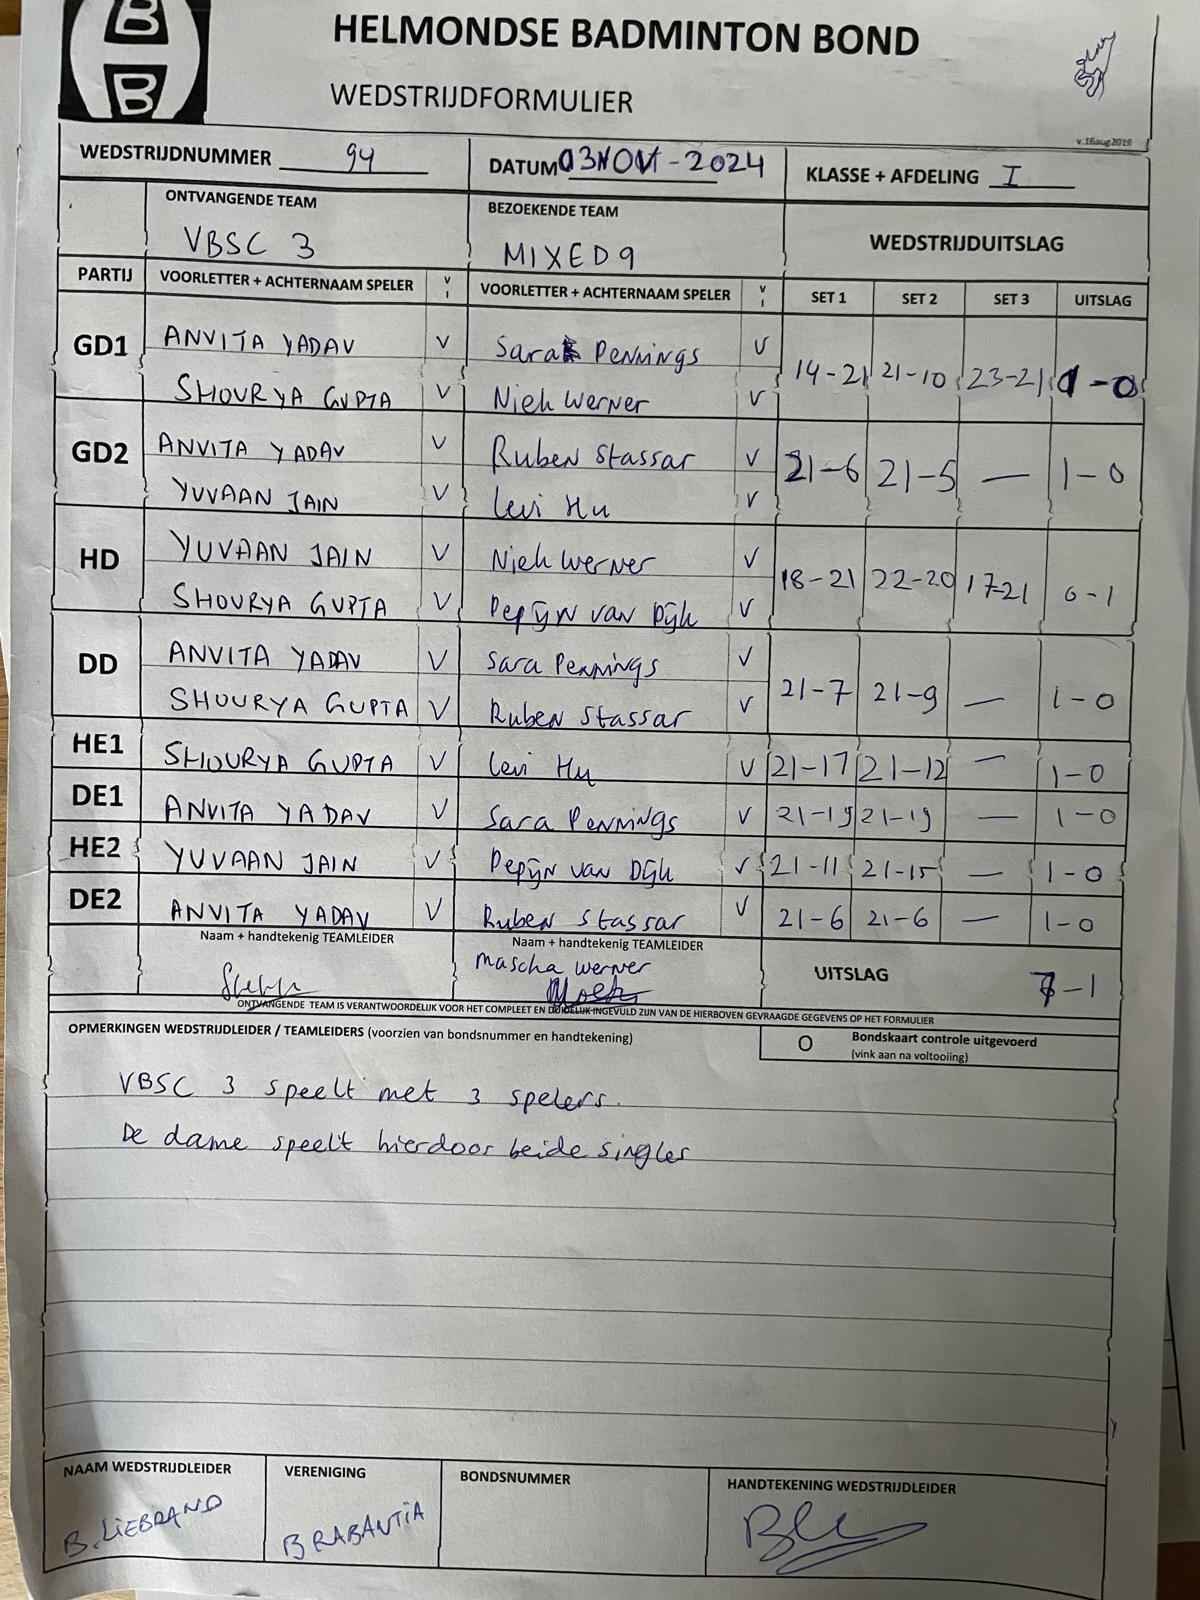 B
B
HELMONDSE BADMINTON BOND
WEDSTRIJDFORMULIER
v.16aug2019
WEDSTRIJDNUMMER 94 DATUM 03 NOV - 2024 KLASSE + AFDELING I
ONTVANGENDE TEAM BEZOEKENDE TEAM WEDSTRIJDUITSLAG
VBSC 3 MIXED 9
PARTIJ VOORLETTER + ACHTERNAAM SPELER V I VOORLETTER + ACHTERNAAM SPELER V I SET 1 SET 2 SET 3 UITSLAG
GD1 ANVITA YADAV V Sara Pennings V 14-21 21-10 23-21 1-0
SHOURYA GUPTA V Niek Werner V
GD2 ANVITA YADAV V Ruben Stassar V 21-6 21-5 — 1-0
YUVAAN JAIN V Levi Hu V
HD YUVAAN JAIN V Niek Werner V 18-21 22-20 17-21 0-1
SHOURYA GUPTA V Pepijn van Dijk V
DD ANVITA YADAV V Sara Pennings V 21-7 21-9 — 1-0
SHOURYA GUPTA V Ruben Stassar V
HE1 SHOURYA GUPTA V Levi Hu V 21-17 21-12 — 1-0
DE1 ANVITA YADAV V Sara Pennings V 21-19 21-19 — 1-0
HE2 YUVAAN JAIN V Pepijn van Dijk V 21-11 21-15 — 1-0
DE2 ANVITA YADAV V Ruben Stassar V 21-6 21-6 — 1-0
Naam + handtekenig TEAMLEIDER Naam + handtekenig TEAMLEIDER UITSLAG 7-1
Mascha Werner
ONTVANGENDE TEAM IS VERANTWOORDELIJK VOOR HET COMPLEET EN DUIDELIJK INGEVULD ZIJN VAN DE HIERBOVEN GEVRAAGDE GEGEVENS OP HET FORMULIER
OPMERKINGEN WEDSTRIJDLEIDER / TEAMLEIDERS (voorzien van bondsnummer en handtekening) O Bondskaart controle uitgevoerd
(vink aan na voltooiing)
VBSC 3 speelt met 3 spelers.
De dame speelt hierdoor beide singles
NAAM WEDSTRIJDLEIDER VERENIGING BONDSNUMMER HANDTEKENING WEDSTRIJDLEIDER
B. LIEBRAND BRABANTIA